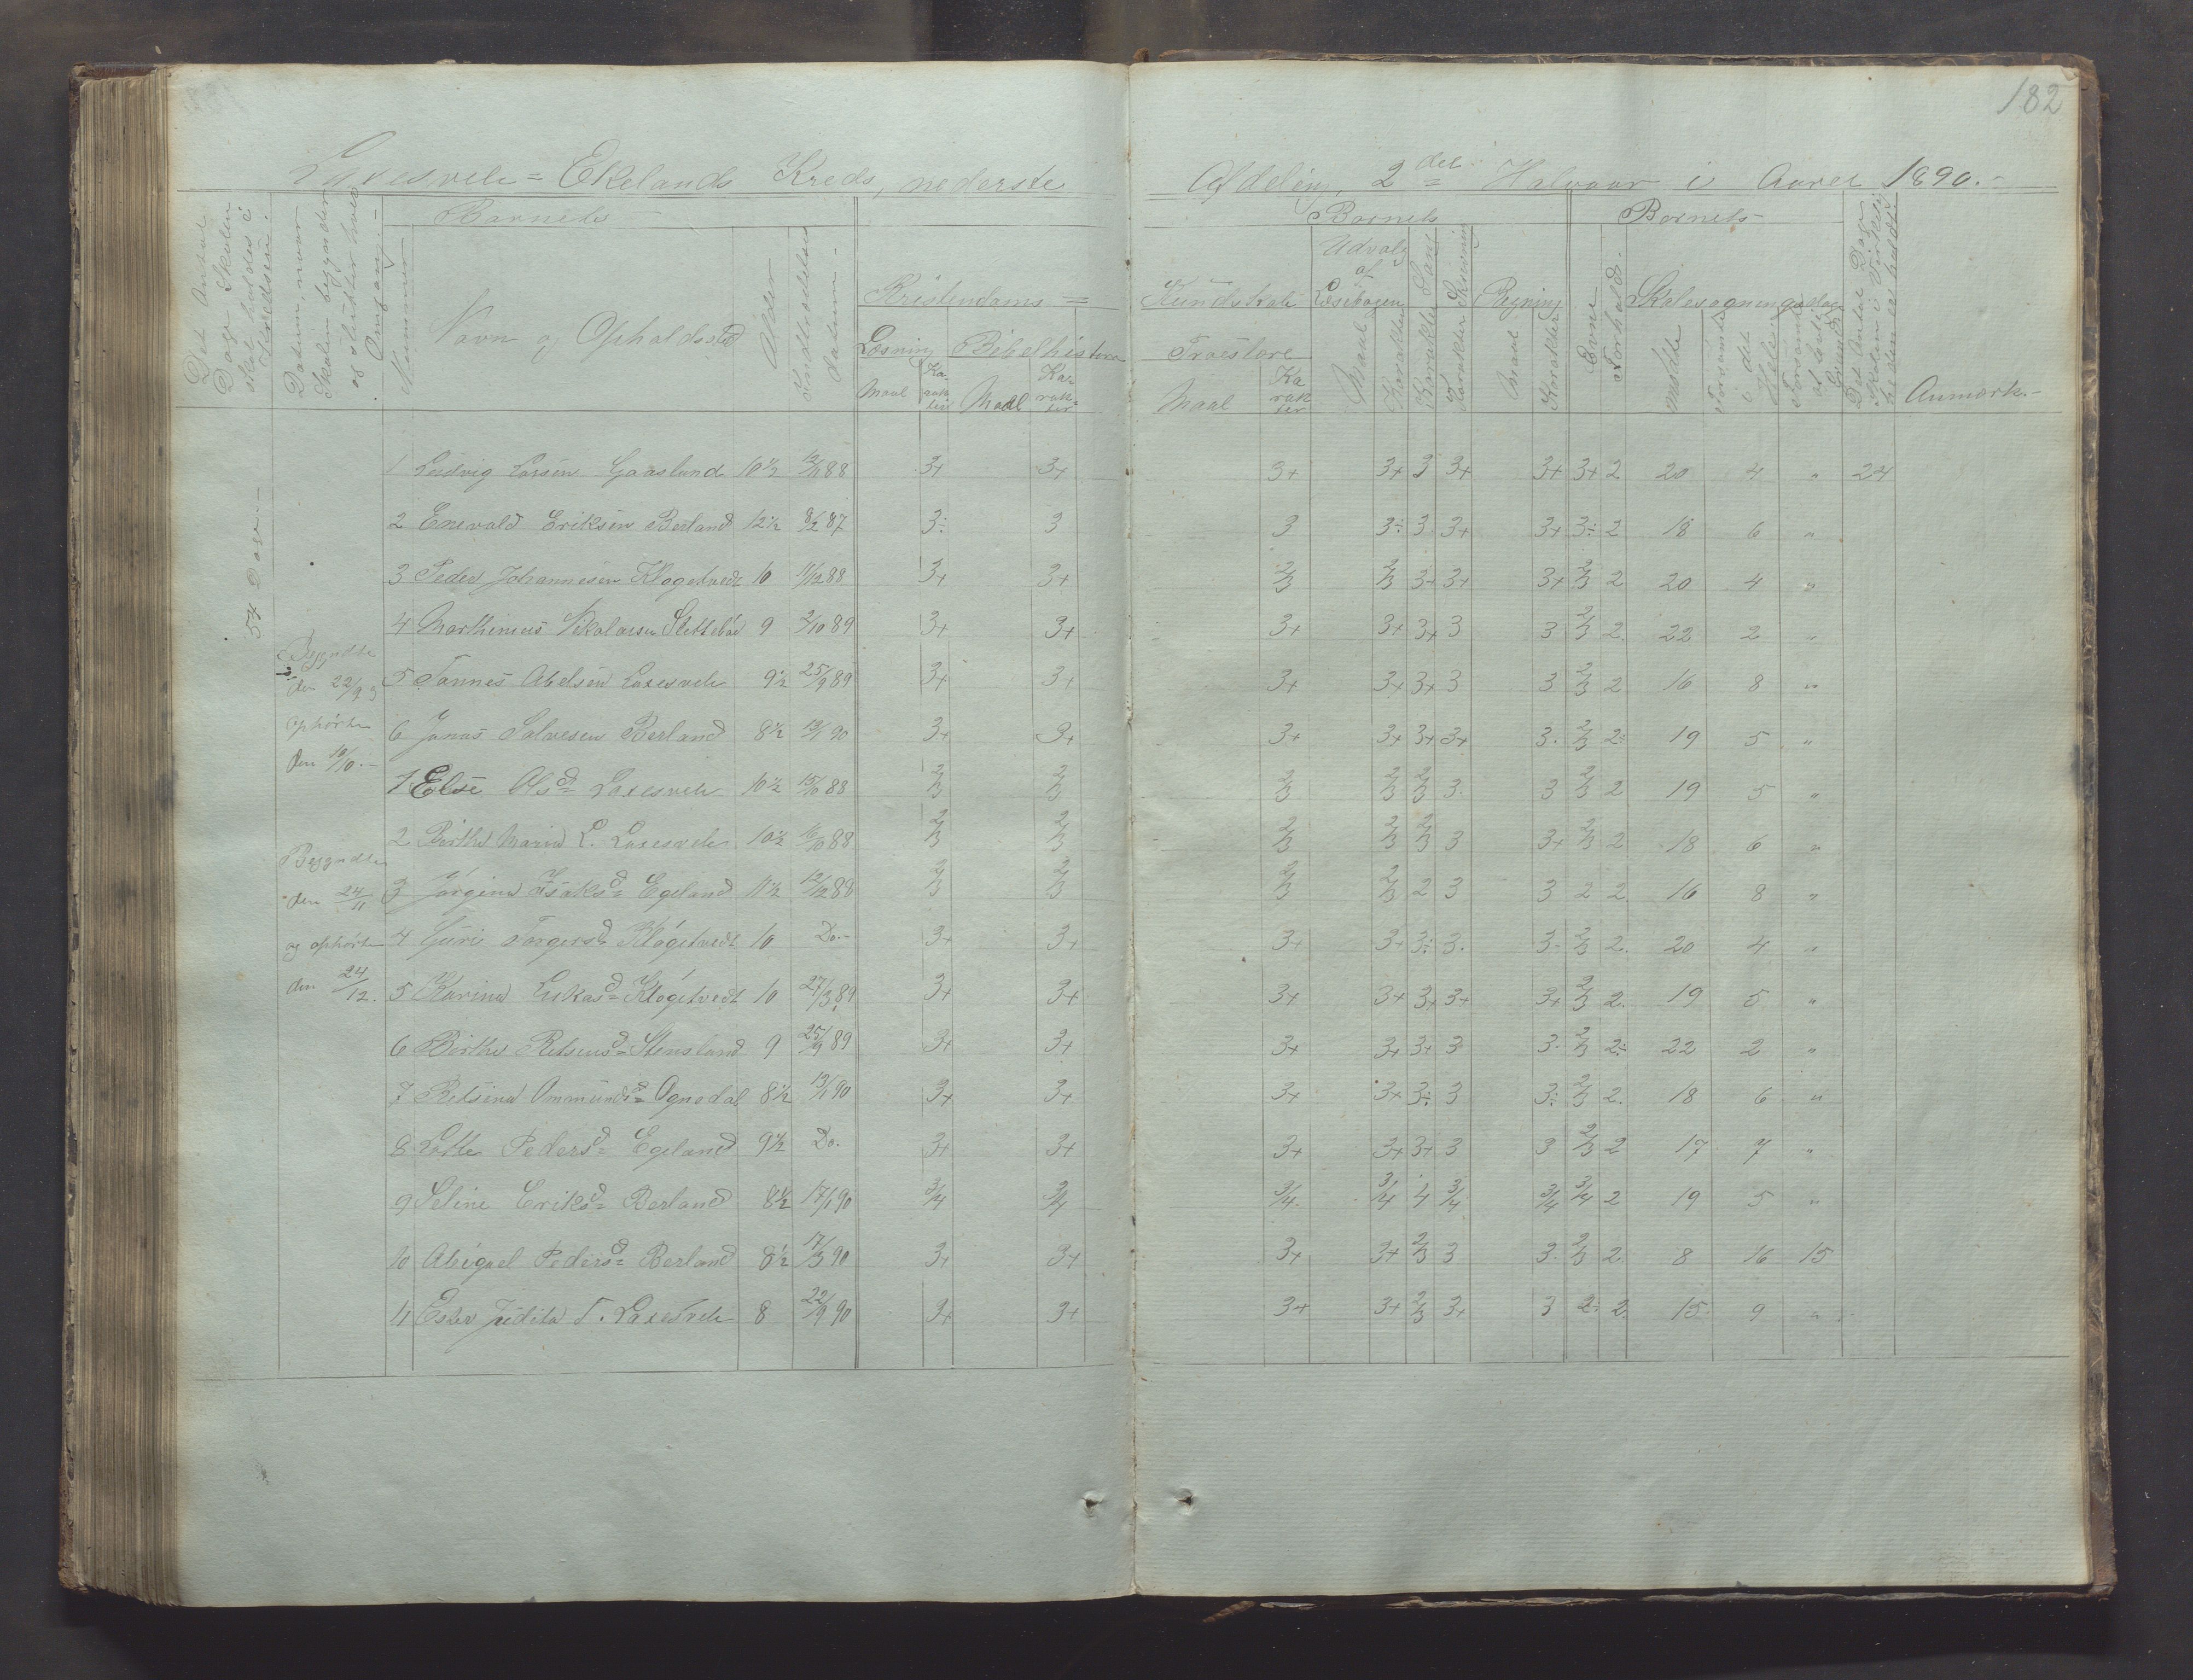 182
Laxesvele = Ekelands Kreds, nederste Afdeling, 2det Halvaar i Aaret 1890.-
Det Antal Dage Skolen skal holdes i Kredsen.
Datum, naar Skolen begynder og slutter hver Omgang.-
Barnets
Nummer
Navn og Opholdssted
Alder
Indtrædelses datum.-
Kristendoms =
Læsning
Bibelhistorie
Maal
Karakter
Maal
Karakter
Barnets
Kundskab i
Troeslære
Maal
Karakter
Udvalg af Læsebogen
Maal
Karakter
Sang Karakter
Skrivning Karakter
Regning
Maal
Karakter
Barnets
Evne
Forhold.-
Skolesøgningsdage
mødte
forsømte i det Hele
Forsømte af lovlig Grund
Det Antal Dage Skolen i Virkeligheden er holdt
Anmærk.-
54 Dage.-
Begyndte
den 22/9
ophørte
den 18/10.-
Begyndte
den 24/11
og ophørte
den 24/12.
1 Ludvig Larsen Gaasland 10½ 12/11 88 3+ 3+ 3+ 3+ 3 3+ 3+ 3+ 2 20 4 " 24
2 Enevald Eriksen Berland 12½ 8/2 87 3÷ 3 3 3÷ 3 3+ 3+ 3÷ 2 18 6 "
3 Peder Johannesen Kløgetvedt 10 11/12 88 3+ 3+ 2/3 2/3 3+ 3+ 3+ 2/3 2 20 4 "
4 Marthinius Nikolaisen Slettebø 9 2/10 89 3+ 3+ 3+ 3+ 3+ 3 3 2/3 2. 22 2 "
5 Tønnes Abelsen Laxesvele 9½ 25/9 89 3+ 3+ 3+ 3+ 3+ 3 3 2/3 2 16 8 "
6 Jonas Salvesen Berland 8½ 13/1 90 3+ 3+ 3+ 3+ 3+ 3+ 3. 2/3 2: 19 5 "
1 Else Olsd= Laxesvele 10½ 15/10 88 2/3 2/3 2/3 2/3 2/3 3. 3 2/3 2 19 5 "
2 Birthe Maria L. Laxesvele 10½ 16/10 88 2/3 2/3 2/3 2/3 2/3 3 3+ 2/3 2 18 6 "
3 Jørgine Isaksd= Egeland 11½ 12/12 88 2/3 2/3 2/3 2/3 2 3 3 2 2 16 8 "
4 Guri Torgersd= Kløgetvedt 10 Do.- 3+ 3+ 3+ 3+ 3÷ 3. 3. 2/3 2. 20 4 "
5 Karine Lukasd= Kløgetvedt 10 27/3 89 3+ 3+ 3+ 3+ 3+ 3+ 3+ 2/3 2. 19 5 "
6 Birthe Retsiusd= Stensland 9 25/9 89 3+ 3+ 3+ 3+ 3+ 3 3. 2/3 2÷ 22 2 "
7 Retsine Ommundsd= Ognedal 8½ 13/1 90 3+ 3+ 3+ 3+ 3÷ 3 3÷ 2/3 2. 18 6 "
8 Lotte Pedersd= Egeland 9½ Do. 3+ 3+ 3+ 3+ 3+ 3 3 2/3 2 17 7 "
9 Seline Eriksd= Berland 8½ 17/1 90 3/4 3/4 3/4 3/4 4 3/4 3/4 3/4 2 19 5 "
10 Abigael Pedersd= Berland 8½ 17/3 90 3+ 3+ 3+ 3+ 2/3 3 3. 2/3 2. 8 16 15
11 Ester Judita T. Laxesvele 8 22/9 90 3+ 3+ 3+ 3+ 2/3 3+ 3 2. 2. 15. 9 "